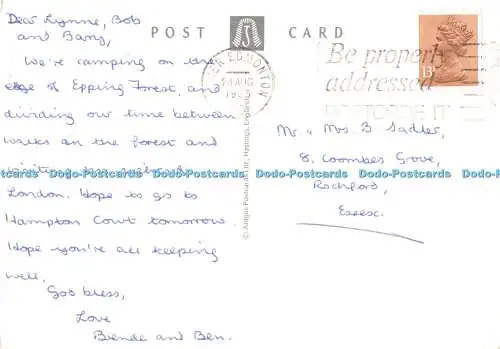 POST CARD
Dear Lynne, Bob
and Barry,
We're camping on the
edge of Epping Forest, and
dividing our time between
walks in the forest and
London. Hope to go to
Hampton Court tomorrow.
Hope you're all keeping
well.
God bless,
Love
Brenda and Ben.
EDMONTON
AUG
Be properly
addressed
13
Mr. & Mrs. B Sadler,
8, Coombes Grove,
Rochford,
Essex.
© Judges Postcards Ltd., Hastings, England
Dodo-Postcards Dodo-Postcards Dodo-Postcards Dodo-Postcards Dodo-Postcards